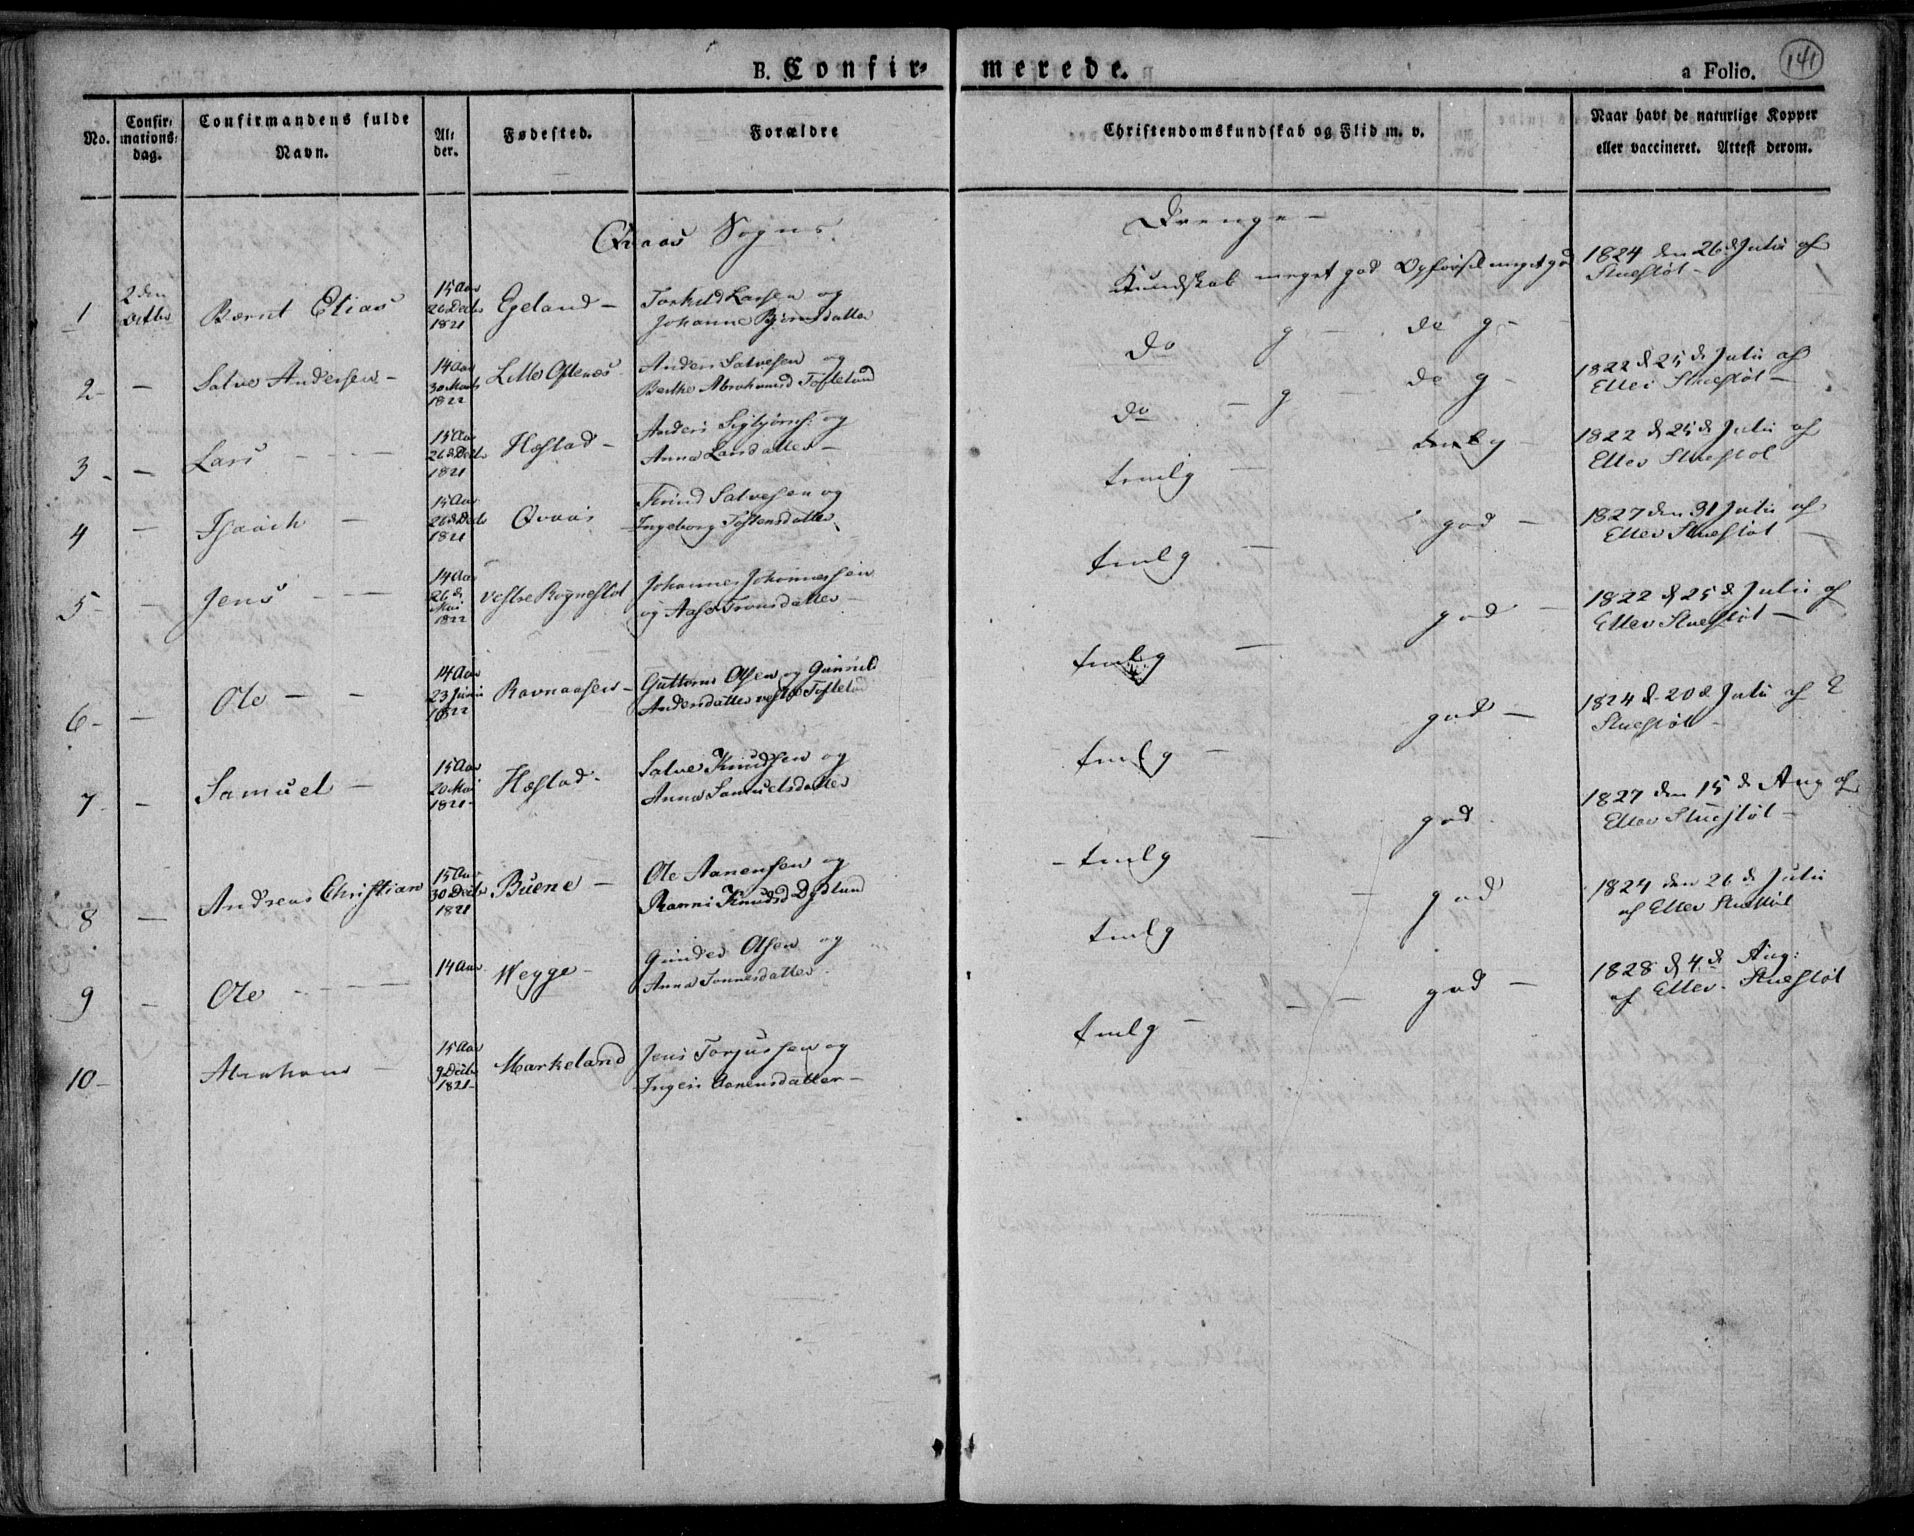 B. Confir- merede. a Folio. 141
No. Confir- mations- dag. Confirmandens fulde Navn. Al- der. Fødested. Forældre Christendomskundskab og Flid m. v. Naar havt de naturlige Kopper eller vaccineret. Attest derom.
Qvaas Sogns Drenge -
1 2den Octbr Bernt Elias 15 Aar 26 Decbr 1821 Egeland - Torkild Larsen og
Johanne Bjørnsdatter
Kundskab meget god Opførsel meget god 1824 den 26 d Julii af
Stuestøl -
2 - Salve Andersen - 14 Aar 30 1822 Lille Ostenes Anders Salvesen og
Berthe Abrahamsd Tofteland
do g - do g - 1822 d 25 d Julii af
Ellev Stuestøl -
3 - Lars - - - 15 Aar 26 d Decbr 1821 Høstad - Anders Sigbjørns: og
Anna Larsdatter -
do - g - do g - 1822 d 25 d Julii af
Ellev Stuestøl
4 - Isaach - 15 Aar 26 d Decbr 1821 Qvaas Salvesen og
Ingeborg Tostensdatter
tmlg - tmlg - 1827 den 31 Julii af
Ellev Stuestøl -
5 - Jens - - - 14 Aar 26 d Mai 1822 vestre Rognestøl Johannes Johannessen
og Aase Tronsdatter -
tmlg - god - 1822 d 25 d Julii af
Ellev Stuestøl -
6 - Ole - - 14 Aar 23 Junii 1822 Ravnaasen - Guttorm Olsen og Gunnild
Andersdatter vestre Tofteland
tmlg - god - 1824 d. 20 d Julii af E
Stuestøl -
7 - Samuel - 15 Aar 20 Mai 1821 - Høstad - Salve Knudsen og
Anna Samuelsdatter
tmlg - god - 1827 den 15 d Aug af
Ellev Stuestøl -
8 - Andreas Christian 15 Aar 30 Decbr 1821 Buene - Ole Aanensen og
Ranni Knudsd Dydland
- tmlg - god 1824 den 26 d Julii
af Ellev Stuestøl
9 - Ole - - - 14 Aar Wegge - Gunder Olsen og
Anna Tønnesdatter -
tmlg - god 1828 d 4 d Aug:
af Ellev Stuestøl
10 - Abraham - 15 Aar 9 Decbr 1821 - Markeland Jens Torjussen og
Ingeri Aanensdatter -
tmlg - - god -